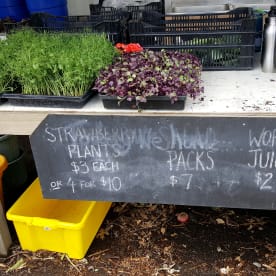 STRAWBERRY
PLANTS
$5 EACH
OR 4 FOR $10
PACKS
$7
WOR
JUI
$2